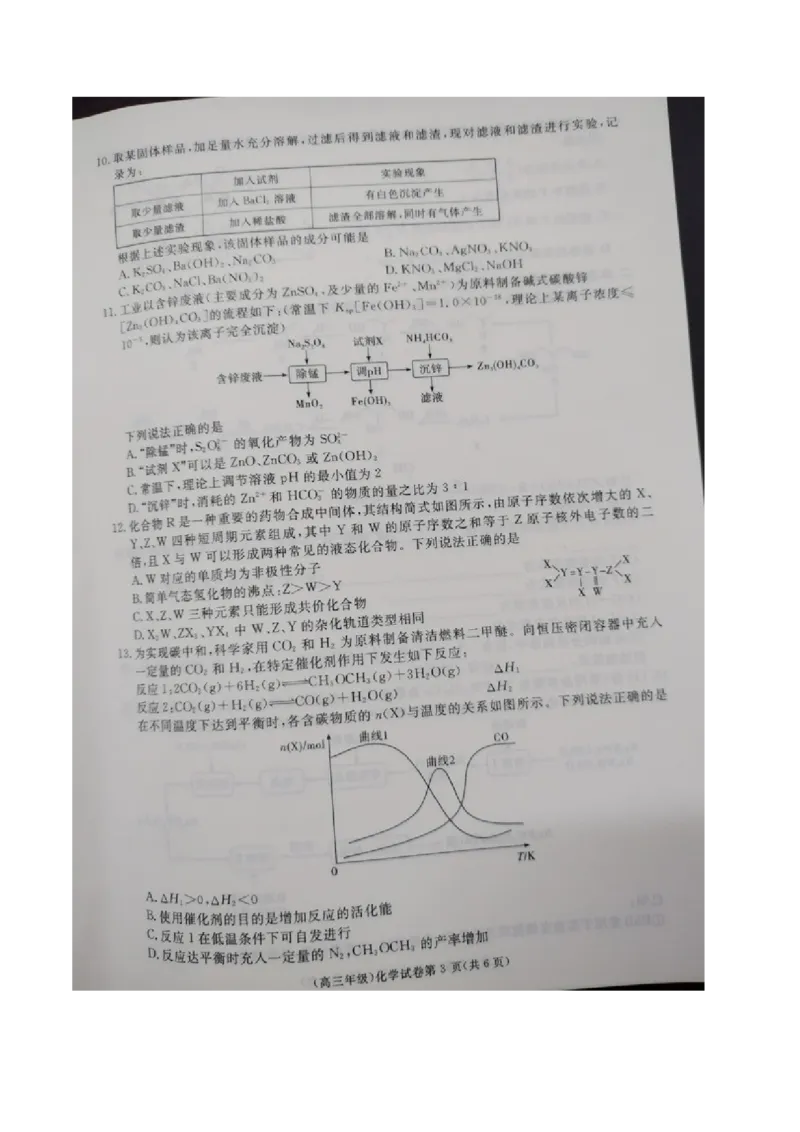 10.取某固体样品,加足量水充分溶解,过滤后得到滤液和滤渣,现对滤液和滤渣进行实验,记
录为:
加入试剂 实验现象
取少量滤液 加入 BaCl₂ 溶液 有白色沉淀产生
取少量滤渣 加入稀盐酸 滤渣全部溶解,同时有气体产生
根据上述实验现象,该固体样品的成分可能是
A.K₂SO₄、Ba(OH)₂、Na₂CO₃ B.Na₂CO₃、AgNO₃、KNO₃
C.K₂CO₃、NaCl、Ba(NO₃)₂ D.KNO₃、MgCl₂、NaOH
11.工业以含锌废液(主要成分为 ZnSO₄,及少量的 Fe²⁺、Mn²⁺)为原料制备碱式碳酸锌
[Zn₃(OH)₄CO₃]的流程如下:(常温下 Ksp[Fe(OH)₃]=1.0×10⁻³⁸,理论上某离子浓度≤
10⁻⁵,则认为该离子完全沉淀)
Na₂S₂O₈ 试剂X NH₄HCO₃
含锌废液 除锰 调pH 沉锌 Zn₃(OH)₄CO₃
MnO₂ Fe(OH)₃ 滤液
下列说法正确的是
A.“除锰”时,S₂O₈²⁻ 的氧化产物为 SO₄²⁻
B.“试剂 X”可以是 ZnO、ZnCO₃ 或 Zn(OH)₂
C.常温下,理论上调节溶液 pH 的最小值为 2
D.“沉锌”时,消耗的 Zn²⁺ 和 HCO₃⁻ 的物质的量之比为 3∶1
12.化合物 R 是一种重要的药物合成中间体,其结构简式如图所示,由原子序数依次增大的 X、
Y、Z、W 四种短周期元素组成,其中 Y 和 W 的原子序数之和等于 Z 原子核外电子数的二
倍,且 X 与 W 可以形成两种常见的液态化合物。下列说法正确的是
A.W 对应的单质均为非极性分子
B.简单气态氢化物的沸点:Z>W>Y
C.X、Z、W 三种元素只能形成共价化合物
D.X₂W、ZX₃、YX₄ 中 W、Z、Y 的杂化轨道类型相同
X X
Y=Y-Y-Z
X X W X
13.为实现碳中和,科学家用 CO₂ 和 H₂ 为原料制备清洁燃料二甲醚。向恒压密闭容器中充入
一定量的 CO₂ 和 H₂,在特定催化剂作用下发生如下反应:
反应1:2CO₂(g)+6H₂(g)⇌CH₃OCH₃(g)+3H₂O(g) ΔH₁
反应2:CO₂(g)+H₂(g)⇌CO(g)+H₂O(g) ΔH₂
在不同温度下达到平衡时,各含碳物质的 n(X)与温度的关系如图所示。下列说法正确的是
n(X)/mol 曲线1 曲线2 CO
0 T/K
A.ΔH₁>0,ΔH₂<0
B.使用催化剂的目的是增加反应的活化能
C.反应 1 在低温条件下可自发进行
D.反应达平衡时充入一定量的 N₂,CH₃OCH₃ 的产率增加
(高三年级)化学试卷第 3 页(共 6 页)